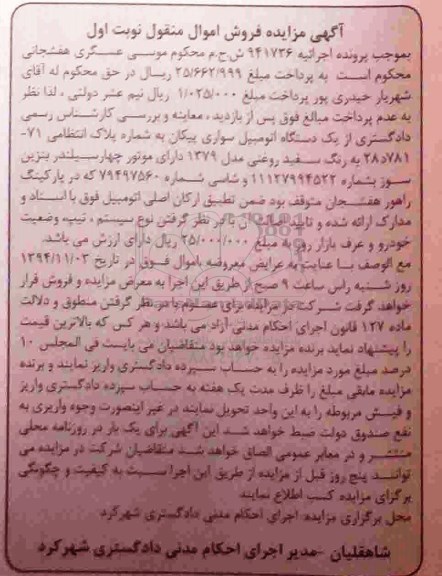 آگهی مزایده فروش اموال منقول نوبت اول
بموجب پرونده اجرائیه ۹۴۱۷۳۶ ش.ح.م محکوم موسی عسگری هفشجانی
محکوم است به پرداخت مبلغ ۲۵/۶۶۲/۹۹۹ ریال در حق محکوم له آقای
شهریار حیدری پور پرداخت مبلغ ۱/۰۲۵/۰۰۰ ریال نیم عشر دولتی ، لذا نظر
به عدم پرداخت مبالغ فوق پس از بازدید ، معاینه و بررسی کارشناس رسمی
دادگستری از یک دستگاه اتومبیل سواری پیکان به شماره پلاک انتظامی ۷۱-
۷۸۱د۲۸ به رنگ سفید روغنی مدل ۱۳۷۹ دارای موتور چهارسیلندر بنزین
سوز بشماره ۱۱۱۲۷۹۹۴۵۲۲ و شاسی شماره ۷۹۴۹۷۵۶۰ که در پارکینگ
راهور هفشجان متوقف بود ضمن تطبیق ارکان اصلی اتومبیل فوق با اسناد و
مدارک ارائه شده و تایید اصالت آن با در نظر گرفتن نوع سیستم ، تیپ، وضعیت
خودرو و عرف بازار روز به مبلغ ۲۵/۰۰۰/۰۰۰ ریال دارای ارزش می باشد.
مع الوصف با عنایت به عرایض معروضه باموال فوق در تاریخ ۱۳۹۴/۱۱/۰۳
روز شنبه راس ساعت ۹ صبح از طریق این اجرا به معرض مزایده و فروش قرار
خواهد گرفت شرکت در مزایده برای عموم با در نظر گرفتن منطوق و دلالت
ماده ۱۲۷ قانون اجرای احکام مدنی آزاد می باشد و هر کس که بالاترین قیمت
را پیشنهاد نماید برنده مزایده خواهد بود متقاضیان می بایست فی المجلس ۱۰
درصد مبلغ مورد مزایده را به حساب سپرده دادگستری واریز نمایند و برنده
مزایده مابقی مبلغ را ظرف مدت یک هفته به حساب سپرده دادگستری واریز
و فیش مربوطه را به این واحد تحویل نمایند در غیر اینصورت وجوه واریزی به
نفع صندوق دولت ضبط خواهد شد این آگهی برای یک بار در روزنامه محلی
منتشر و در معابر عمومی الصاق خواهد شد متقاضیان شرکت در مزایده می
توانند پنج روز قبل از مزایده از طریق این اجرا نسبت به کیفیت و چگونگی
برگزای مزایده کسب اطلاع نمایند
محل برگزاری مزایده: اجرای احکام مدنی دادگستری شهرکرد
شاهقلیان -مدیر اجرای احکام مدنی دادگستری شهرکرد